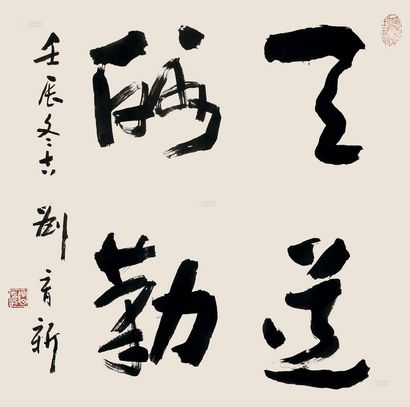 天道
酬勤
壬辰冬吉
劉育新